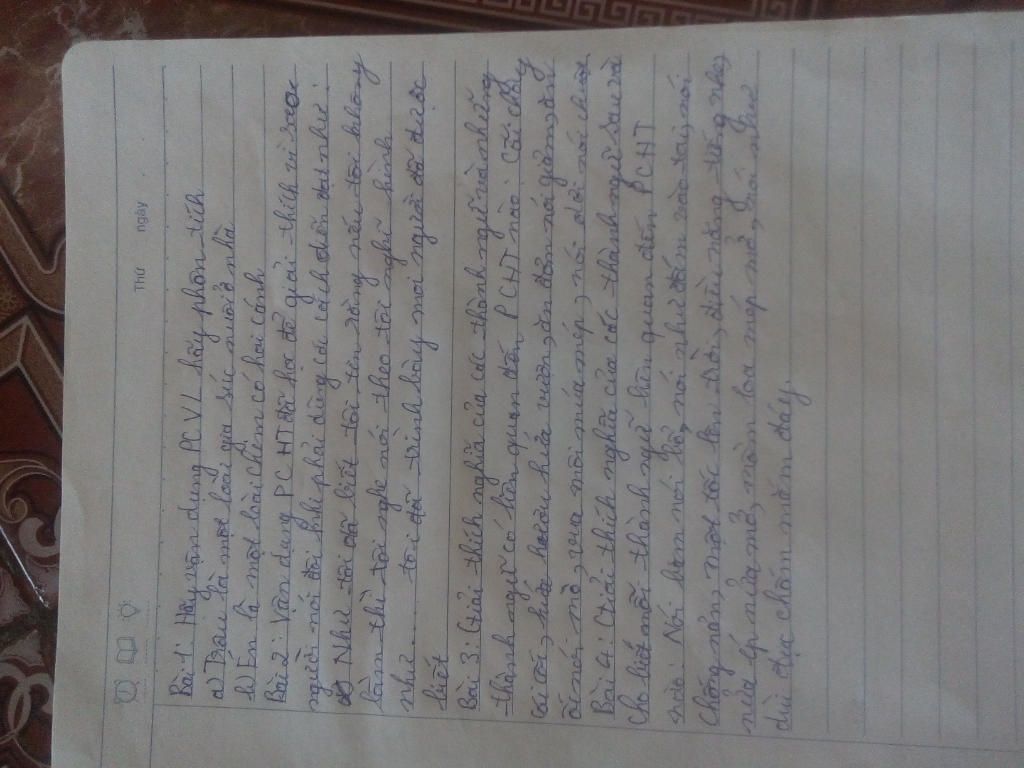 Thứ ngày
Bài 1: Hãy vận dụng PCVL hãy phân tích
a) Trâu là một loài gia súc nuôi ở nhà
b) Én là một loài chim có hai cánh
Bài 2: Vận dụng PCHT đã học để giải thích vì sao
người nói đôi khi phải dùng cách diễn đạt như:
Như tôi đã biết tôi tin rằng nếu tôi không
lầm thì tôi nghe nói theo tôi nghĩ hình
như... tôi đã trình bày mọi người đã được
biết
Bài 3: Giải thích nghĩa của các thành ngữ và những
thành ngữ có liên quan đến PCHT nào: Cãi chày
cãi cối, hứa hươu hứa vượn, ăn đơm nói đặt, ăn
ốc nói mò, khua môi múa mép, nói dơi nói chuột
Bài 4: Giải thích nghĩa của các thành ngữ sau và
cho biết mỗi thành ngữ liên quan đến PCHT
nào: Nói băm nói bổ, nói như đấm vào tai, nói
nửa úp nửa mở, mồm loa mép mở,
dùi đục chấm mắm cáy.